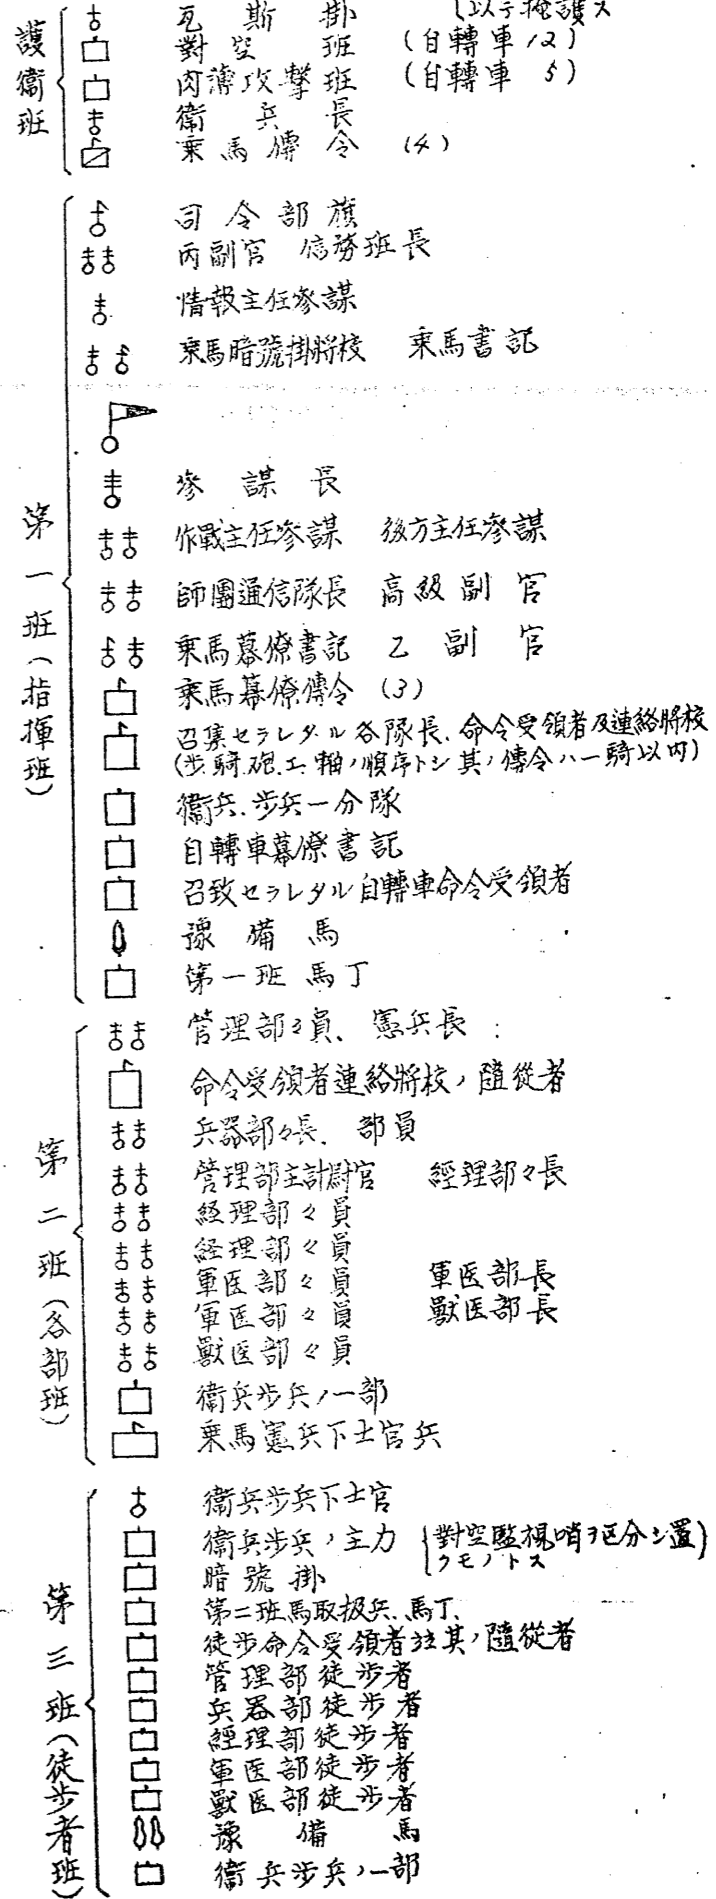 護衞班
瓦斯掛 〔以テ掩護ス
對空班 (自轉車12)
肉薄攻擊班 (自轉車 5)
衞兵長
乘馬傳令 (4)
第一班(指揮班)
司令部旗
丙副官 信務班長
情報主任參謀
乘馬暗號掛將校 乘馬書記
參謀長
作戰主任參謀 後方主任參謀
師團通信隊長 高級副官
乘馬幕僚書記 乙副官
乘馬幕僚傳令 (3)
召集セラレタル各隊長、命令受領者及連絡將校
(步、騎、砲、工、輜ノ順序トシ其ノ傳令ハ一騎以内)
衞兵、步兵一分隊
自轉車幕僚書記
召致セラレタル自轉車命令受領者
豫備馬
第一班馬丁
第二班(各部班)
管理部々員、憲兵長
命令受領者連絡將校ノ隨從者
兵器部々長、部員
管理部主計尉官 經理部々長
経理部々員
経理部々員
軍医部々員 軍医部長
軍医部々員 獸医部長
獸医部々員
衞兵步兵ノ一部
乘馬憲兵下士官兵
第三班(徒步者班)
衞兵步兵下士官
衞兵步兵ノ主力 {對空監視哨ヲ区分シ置クモノトス}
暗號掛
第二班馬取扱兵、馬丁、
徒步命令受領者竝其ノ隨從者
管理部徒步者
兵器部徒步者
經理部徒步者
軍医部徒步者
獸医部徒步者
豫備馬
衞兵步兵ノ一部